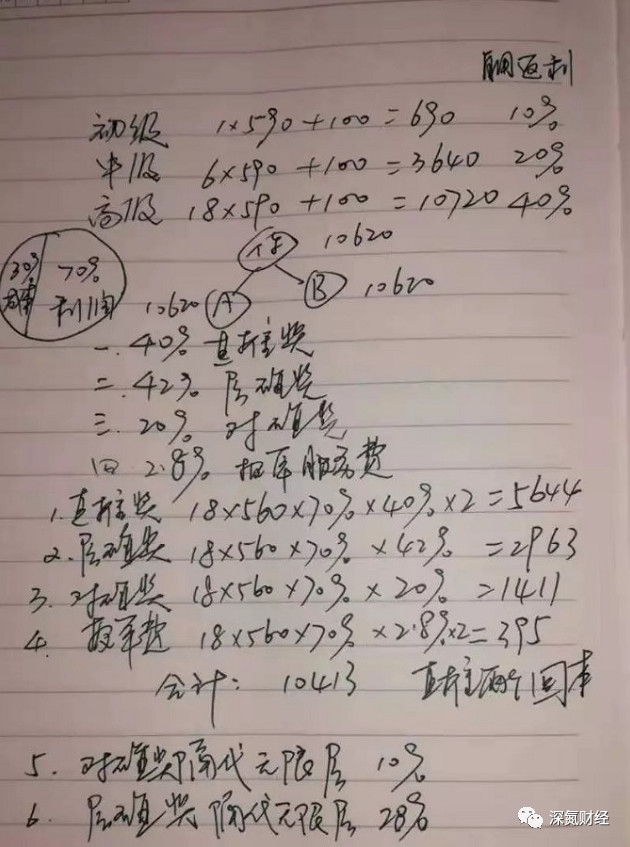 返利
初级 1×590+100=690 10%
中级 6×590+100=3640 20%
高级 18×590+100=10720 40%
30% 70% 利润
10620
10620 A B 10620
一. 40% 直推奖
二. 42% 层碰奖
三. 20% 对碰奖
四 2.8% 报单服务费
1. 直推奖 18×560×70%×40%×2=5644
2. 层碰奖 18×560×70%×42% =2963
3. 对碰奖 18×560×70%×20% =1411
4. 报单费 18×560×70%×2.8%×2=395
合计: 10413 直推两个回本
5. 对碰奖隔代无限层 10%
6. 层碰奖隔代无限层 28%
深氮财经